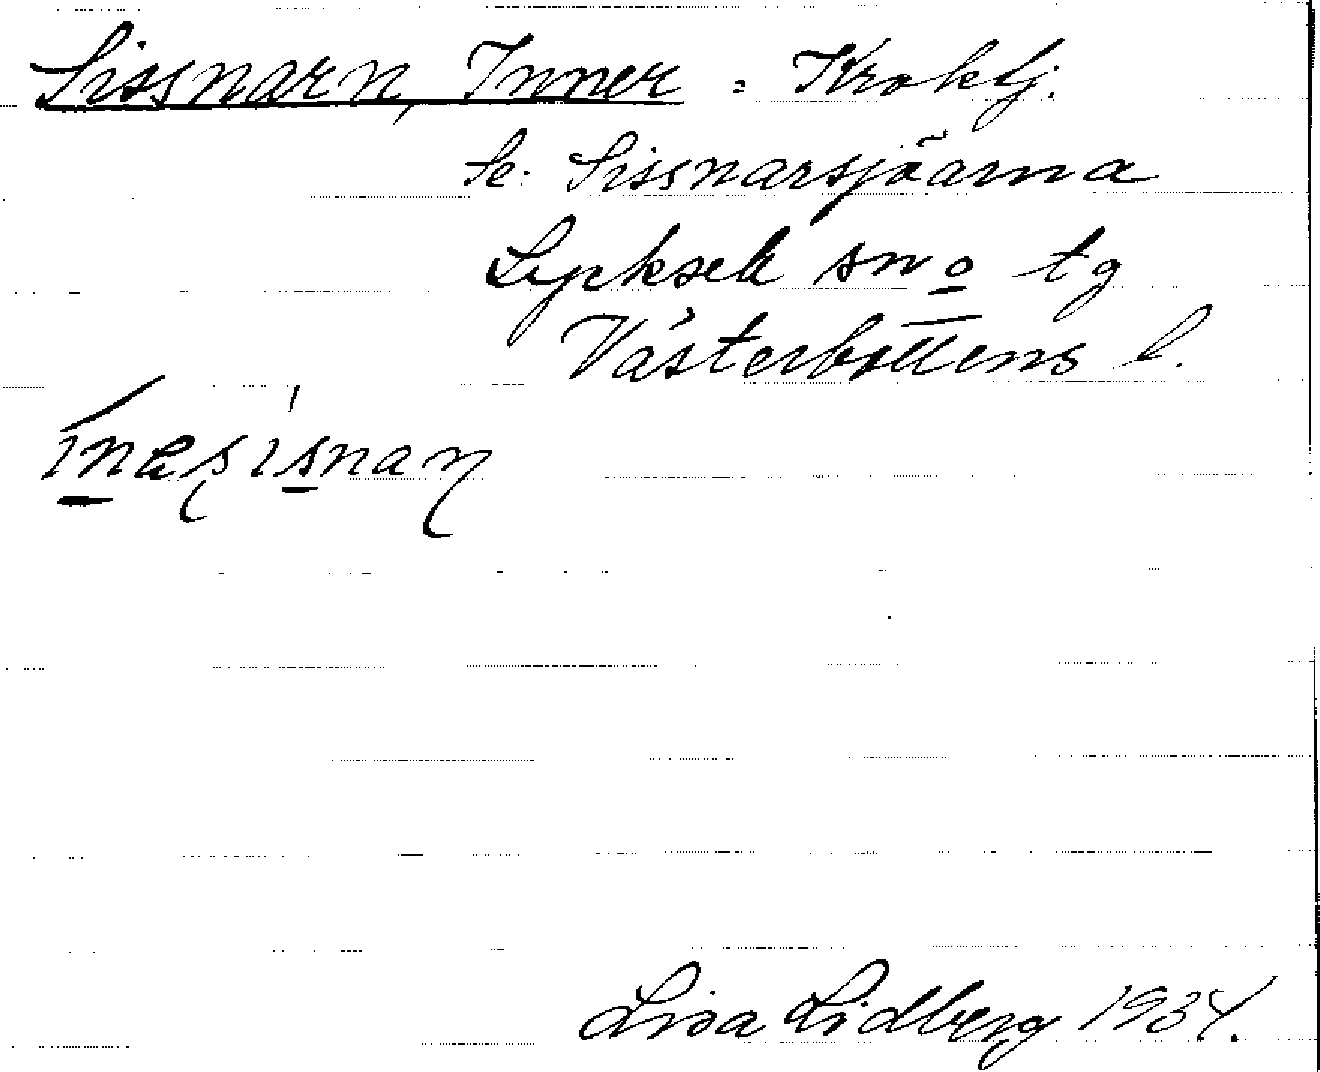 Sissnarn, Inner = Kroktj.
Se: Sissnarsjöarna
Lycksele sn o tg
Västerbottens l.
Lisa Lidberg 1934.